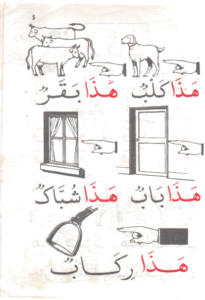 ٤
هَذَا كَلْبٌ هَذَا بَقَرٌ
هَذَا بَابٌ هَذَا شُبَّاكٌ
هَذَا رِكَابٌ